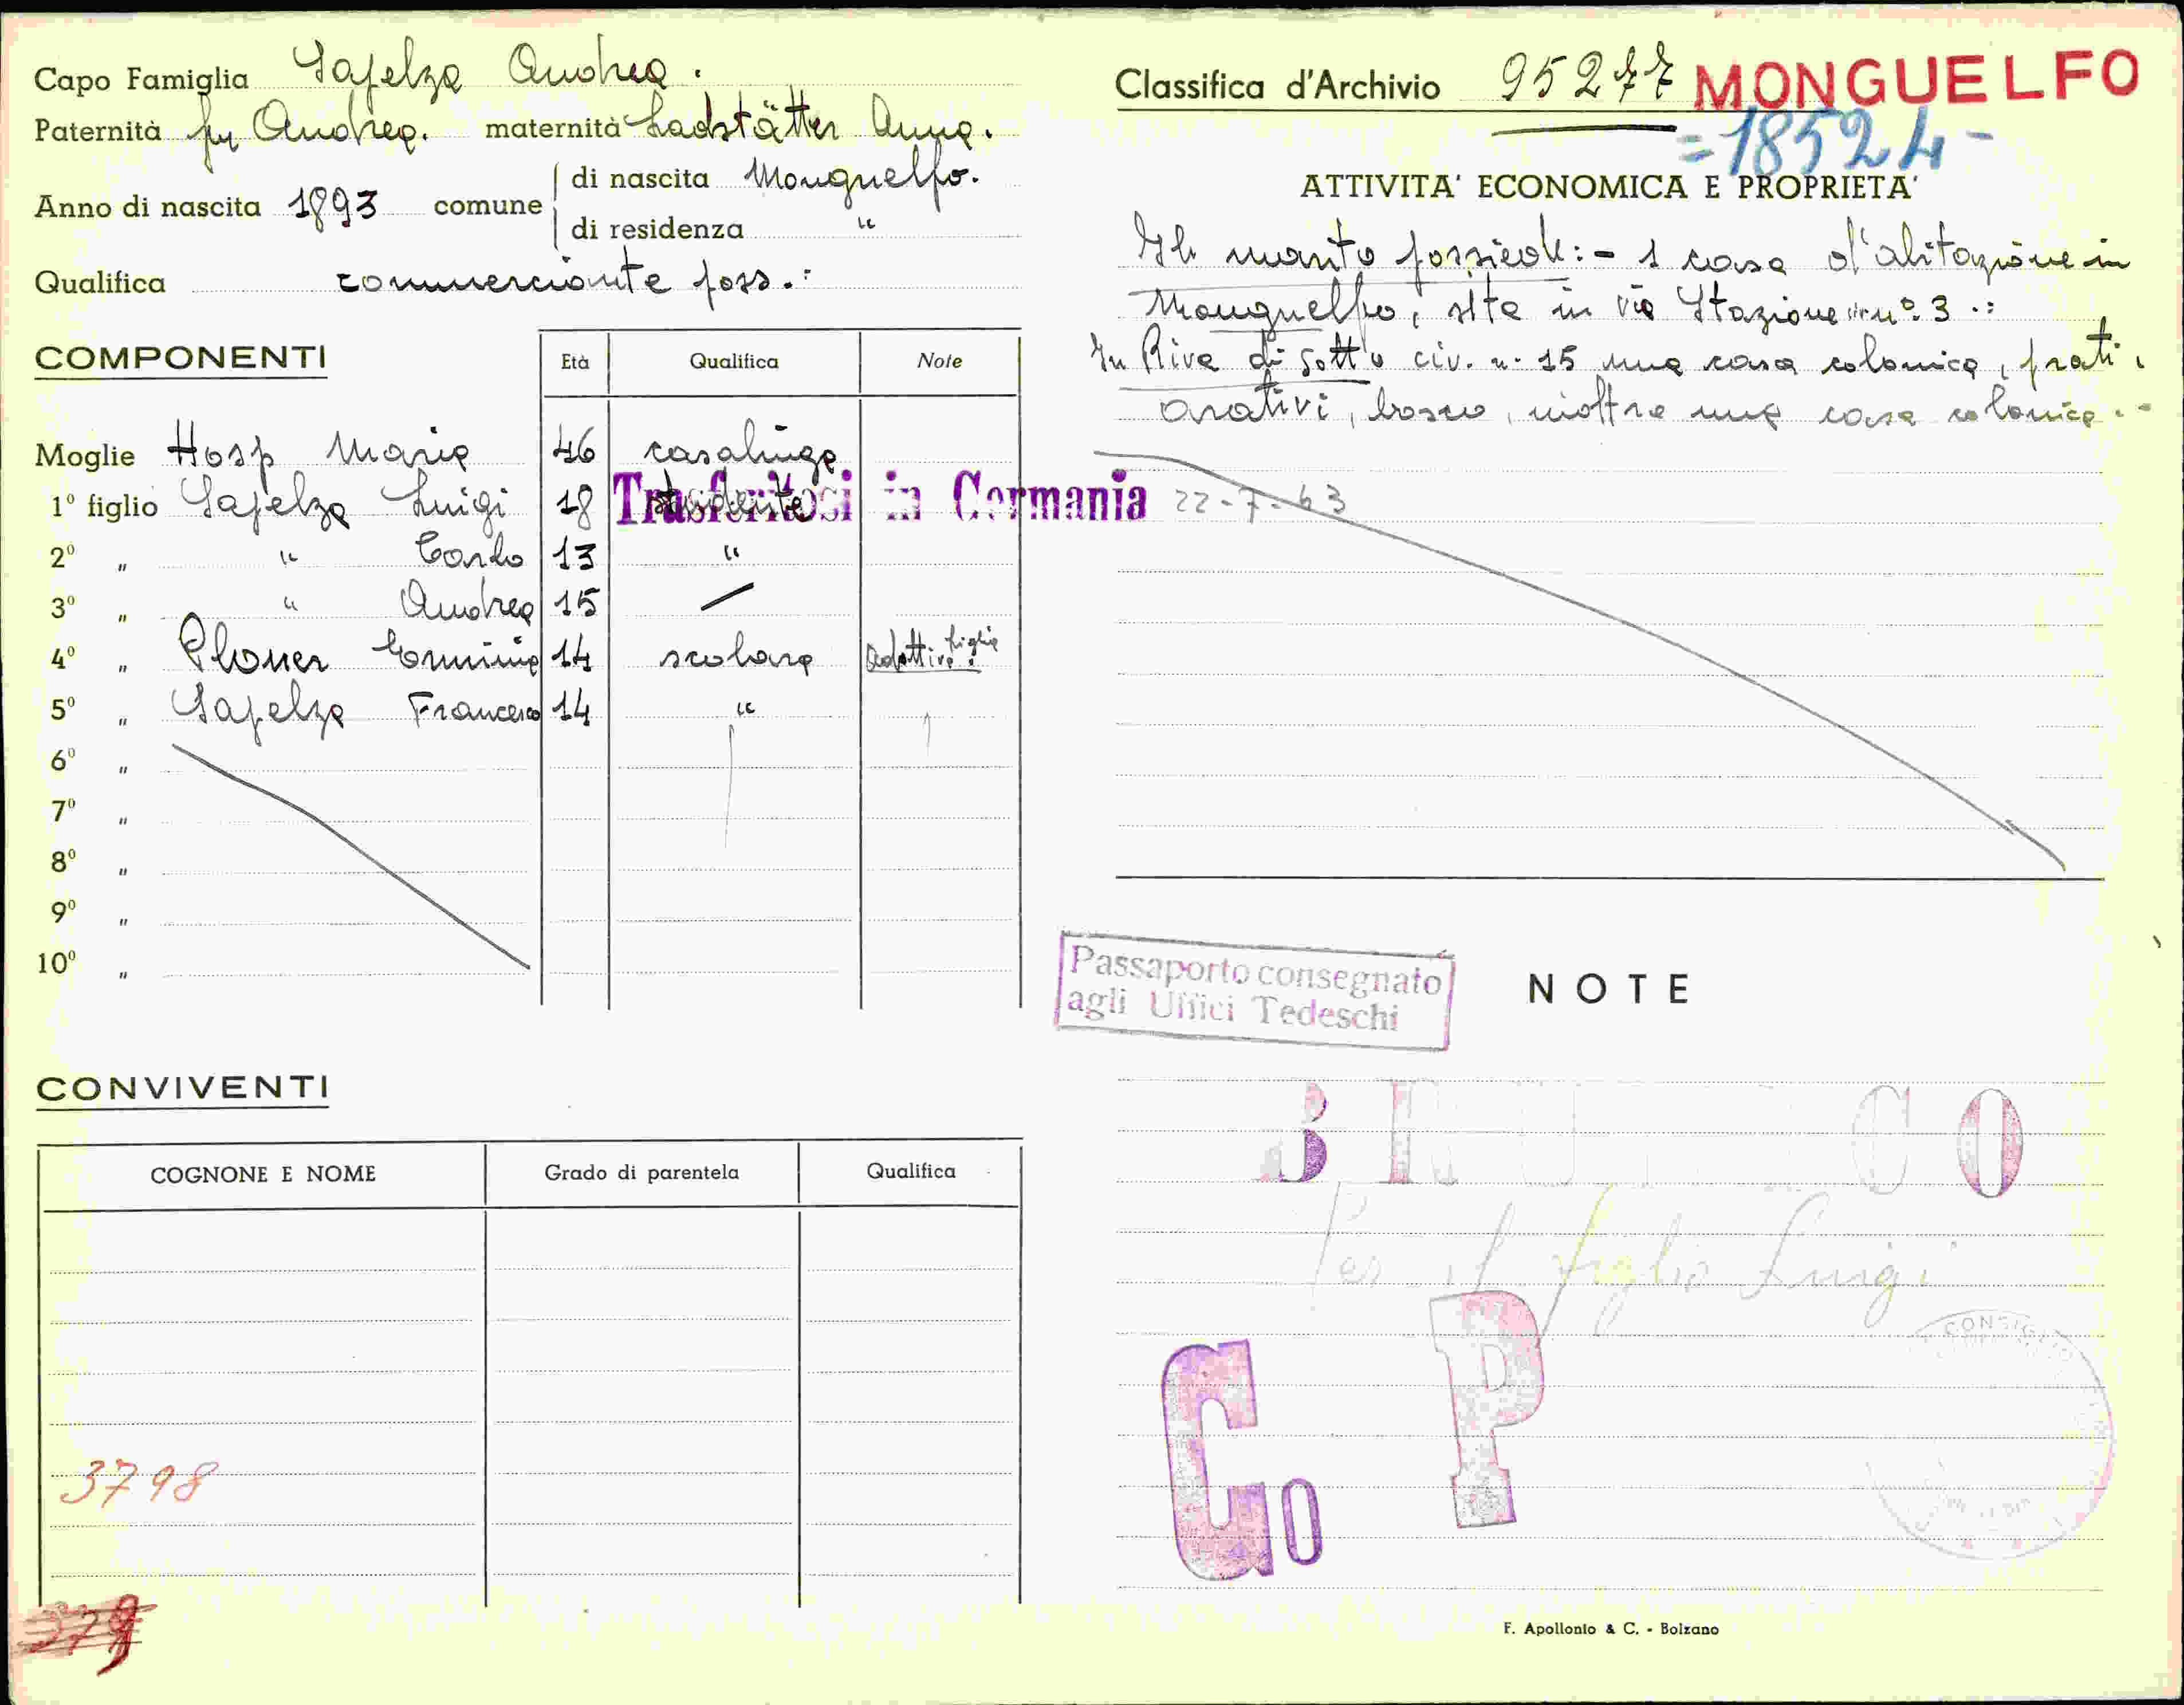 Capo Famiglia Sapelza Andrea.
Paternità fu Andrea. maternità Ladstätter Anna.
Anno di nascita 1893 comune di nascita Monguelfo.
di residenza "
Qualifica commerciante poss.:
COMPONENTI Età Qualifica Note
Moglie Hosp Maria 46 casalinga
1º figlio Sapelza Luigi 18 studente
Trasferitosi in Germania 22-7-43
2º " " Carlo 13 "
3º " " Andrea 15 —
4º " Ploner Erminia 14 scolara adottiva figlia
5º " Sapelza Francesco 14 "
6º "
7º "
8º "
9º "
10º "
CONVIVENTI
COGNONE E NOME Grado di parentela Qualifica
3798
379
Classifica d'Archivio 95277 MONGUELFO
=18524-
ATTIVITA' ECONOMICA E PROPRIETA'
Il marito possiede:- 1 casa d'abitazione in
Monguelfo, sita in via Stazione nº. 3 .:
In Riva di Sotto civ. n. 15 una casa colonica, prati,
arativi, bosco, inoltre una casa colonica.-
Passaporto consegnato
agli Uffici Tedeschi
NOTE
BRUNICO
Per il figlio Luigi
P
Go
CONSIGL
F. Apollonio & C. - Bolzano